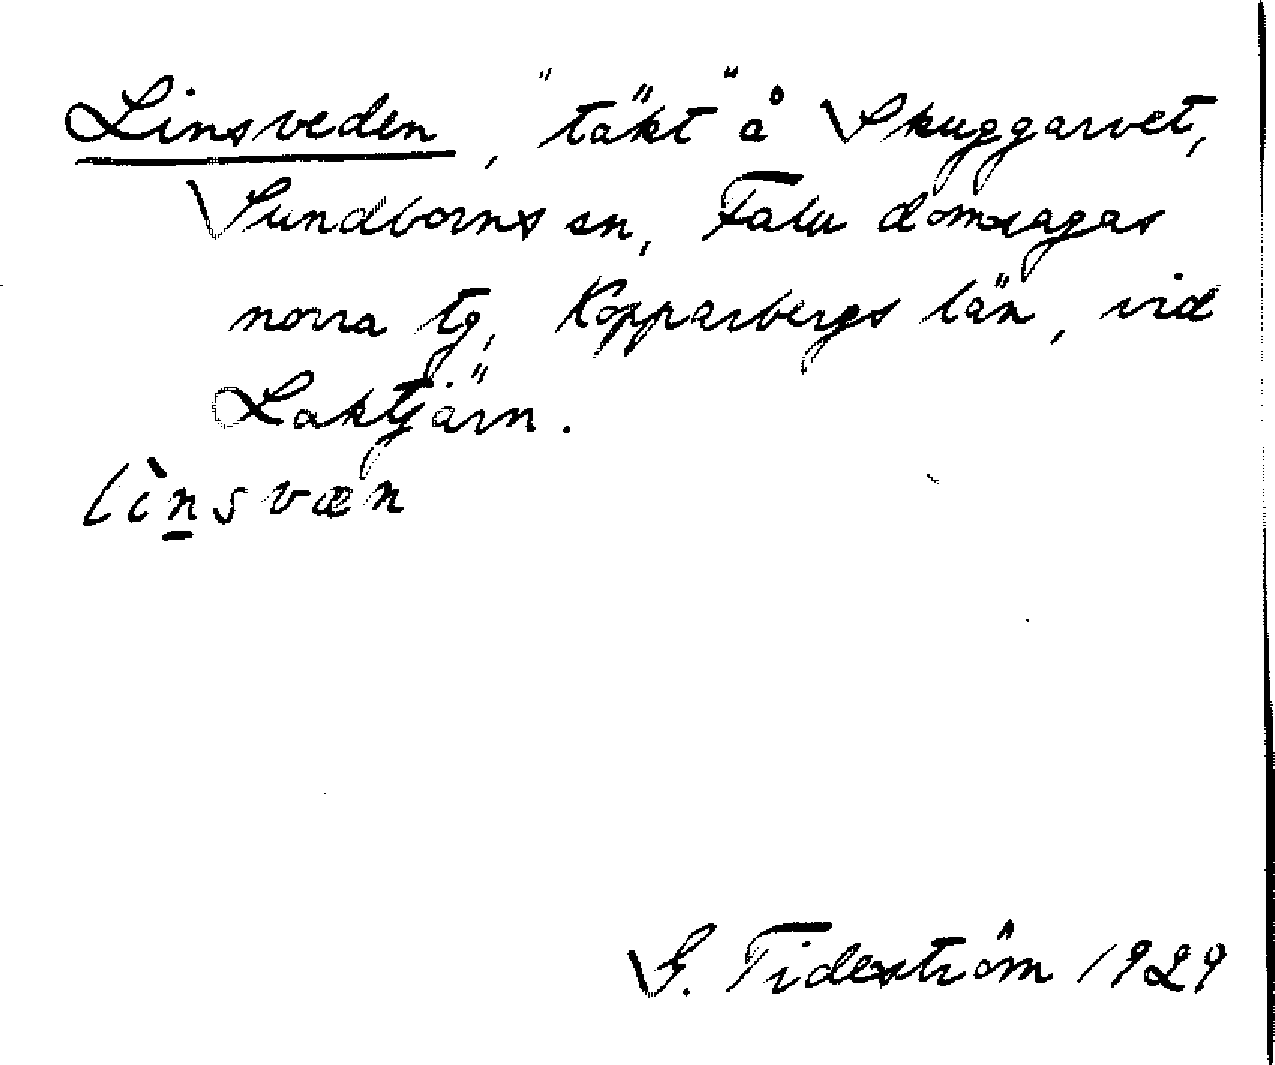 Linsveden, "täkt" å Skuggarvet,
Sundborns sn, Falu domsagas
norra tg, Kopparbergs län, vid
Laktjärn.
lìn̲svæn
G. Tideström 1929